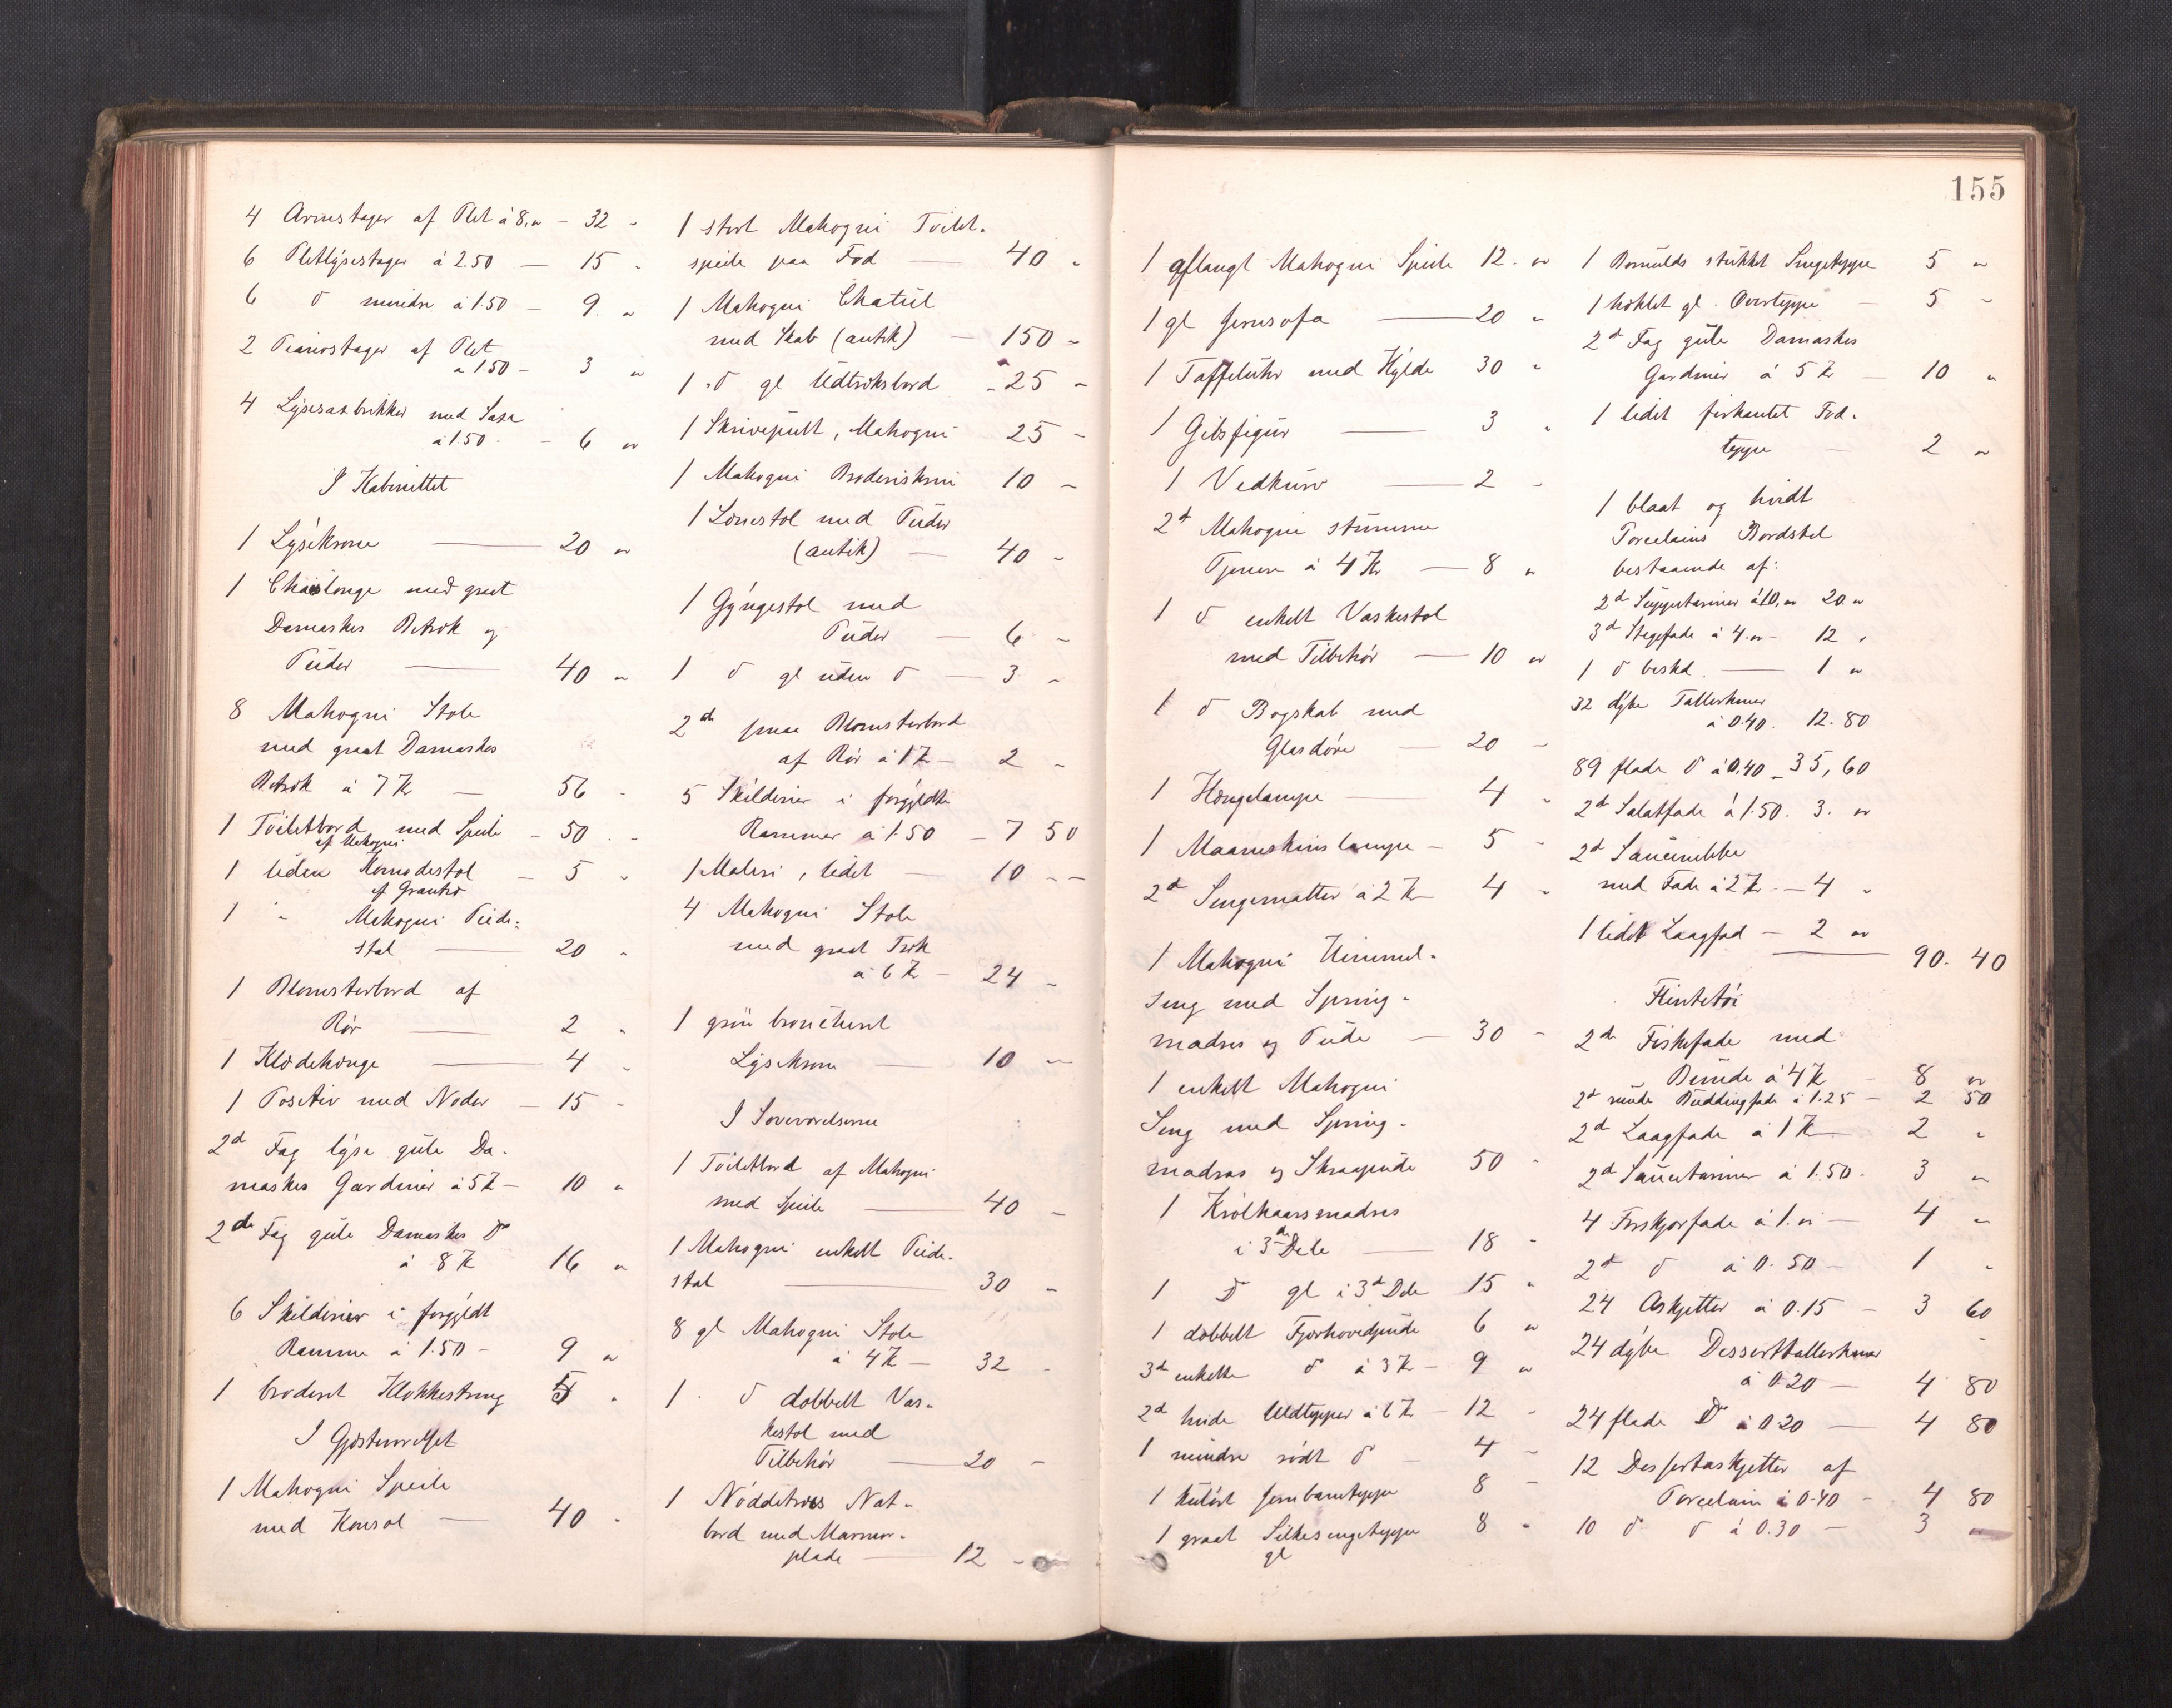 4 Armstager af Plet à 8,„ – 32 „
6 Pletlysestager à 2.50 — 15 „
6 do mindre à 1.50 – 9 „
2 Pianostager af Plet
à 1.50 – 3 „
4 Lysesaxbrikker med Saxe
à 1.50 – 6 „
I Kabinettet
1 Lysekrone — 20 „
1 Chaislonge med grønt
Damaskes Betræk og
Puder — 40 „
8 Mahogni Stole
med grønt Damaskes
Betræk à 7 Kr — 56 „
1 Toiletbord med Speile – 50 „
af Mahogni
1 liden Komodestol – 5 „
af Grantræ
1 „ Mahogni Pide-
stal — 20 „
1 Blomsterbord af
Rør — 2 „
1 Klædehænge — 4 „
1 Positiv med Noder — 15 „
2de Fag lyse gule Da-
maskes Gardiner à 5 Kr – 10 „
2de Fag gule Damaskes do
à 8 Kr 16 „
6 Skilderier i forgyldt
Ramme à 1.50 – 9 „
1 broderet Klokkestreng 5 „
I Gjæsteværelset
1 Mahogni Speile
med Konsol — 40 „
1 stort Mahogni Toilet-
speile paa Fod — 40 „
1 Mahogni Chatul
med Skab (antik) — 150 „
1 do gl Udtræksbord – 25 „
1 Skrivepult, Mahogni 25 „
1 Mahogni Broderiskrin 10 „
1 Lænestol med Puder
(antik) — 40 „
1 Gyngestol med
Puder — 6 „
1 do gl uden do — 3 „
2de smaa Blomsterbord
af Rør à 1 Kr – 2 „
5 Skilderier i forgyldte
Rammer à 1.50 – 7 50
1 Maleri, lidet — 10 „
4 Mahogni Stole
med grønt Træk
à 6 Kr – 24 „
1 grøn broncheret
Lysekrone — 10 „
I Soveværelserne
1 Toiletbord af Mahogni
med Speile — 40 „
1 Mahogni enkelt Pide-
stal — 30 „
8 gl Mahogni Stole
à 4 Kr — 32 „
1 do dobbelt Vas-
kestol med
Tilbehør — 20 „
1 Nøddetræes Nat-
bord med Marmor-
plade — 12 „
155
1 aflangt Mahogni Speile 12 „
1 gl Jernsofa — 20 „
1 Taffeluhr med Hylde 30 „
1 Gibsfigur — 3 „
1 Vedkurv — 2 „
2de Mahogni stumme
Tjenere à 4 Kr — 8 „
1 do enkelt Vaskestol
med Tilbehør — 10 „
1 do Bogskab med
Glasdøre — 20 „
1 Hængelampe — 4 „
1 Maaneskinslampe – 5 „
2de Sengematter à 2 Kr 4 „
1 Mahogni Himmel-
seng med Spring-
madras og Pude — 30 „
1 enkelt Mahogni
Seng med Spring-
madras og Skraapude 50 „
1 Krølhaarsmadras
i 3de Dele — 18 „
1 do gl i 3de Dele 15 „
1 dobbelt Fjærhovedpude 6 „
3de enkelte do à 3 Kr – 9 „
2de hvide Uldtepper à 6 Kr – 12 „
1 mindre rødt do – 4 „
1 kulørt Jernbaneteppe 8 „
1 graat Silkesengeteppe 8 „
gl
1 Bomulds stukket Sengeteppe 5 „
1 hæklet gl. Overteppe – 5 „
2de Fag gule Damaskes
Gardiner à 5 Kr — 10 „
1 lidet firkantet Fod-
teppe — 2 „
1 blaat og hvidt
Porcelains Bordstel
bestaaende af:
2de Suppeteriner à 10,„ 20 „
3de Stegefade à 4.„ – 12 „
1 do beskd. — 1 „
32 dybe Tallerkener
à 0.40. 12.80
89 flade do à 0.40 – 35,60
2de Salatfade à 1.50. 3. „
2de Saucenebbe
med Fade à 2 Kr — 4 „
1 lidet Laagfad — 2 „
— 90. 40
Flintetøi
2de Fiskefade med
Bunde à 4 Kr – 8 „
2de runde Buddingfade à 1.25 – 2 50
2de Laagfade à 1 Kr — 2 „
2de Sauceteriner à 1.50. 3 „
4 Forskjærfade à 1.„ — 4 „
2de do à 0.50 – 1 „
24 Askjetter à 0.15 – 3 60
24 dybe Desserttallerkener
à 0.20 — 4 80
24 flade do à 0.20 — 4 80
12 Dessertaskjetter af
Porcelain à 0.40 – 4 80
10 do do à 0.30 — 3 „